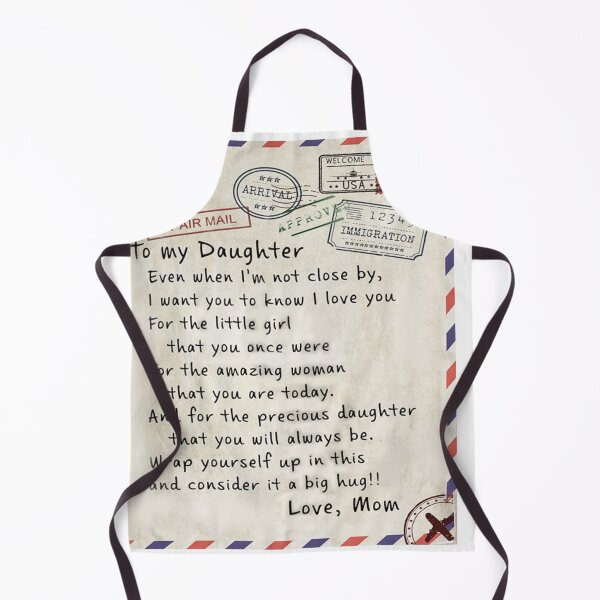 WELCOME
USA
ARRIVAL
AIR MAIL
APPROVE
1234
IMMIGRATION
To my Daughter
Even when I'm not close by,
I want you to know I love you
For the little girl
that you once were
for the amazing woman
that you are today.
And for the precious daughter
that you will always be.
Wrap yourself up in this
and consider it a big hug!!
Love, Mom